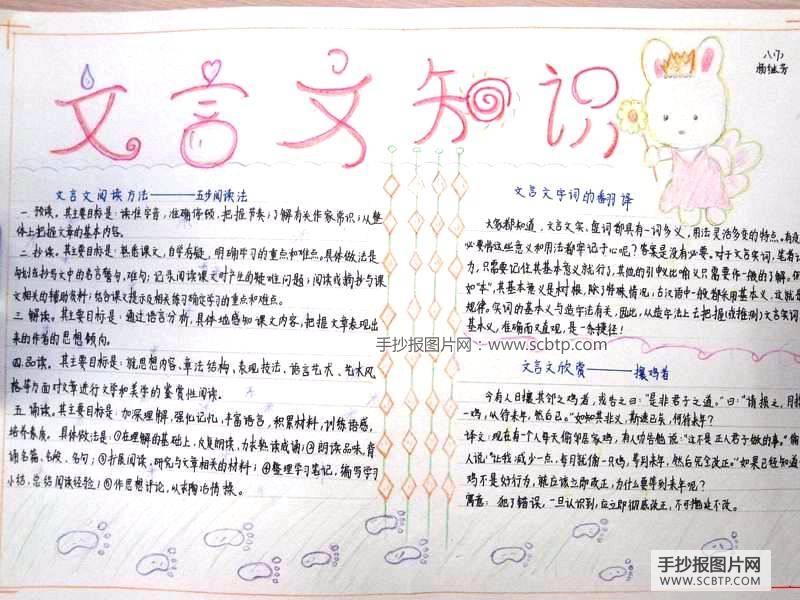 文言文知识
八(7)
文言文阅读方法———五步阅读法
一、预读。其主要目标是：读准字音，准确停顿，把握节奏；了解有关作家常识；从整
体上把握文章的基本内容。
二、抄读。其主要目标是：熟悉课文，自学存疑，明确学习的重点和难点。具体做法是
勾划或抄写文中的名言警句，难句；记录阅读课文时产生的疑难问题；阅读或摘抄与课
文相关的辅助资料；结合课文提示及相关练习确定学习的重点和难点。
三、解读。其主要目标是：通过语言分析，具体地感知课文内容，把握文章表现出
来的作者的思想倾向。
四.品读。其主要目标是：就思想内容、章法结构、表现技法、语言艺术、艺术风
格等方面对文章进行文学和美学的鉴赏性阅读。
五、诵读。其主要目标是：加深理解，强化记忆，丰富语言，积累材料，训练语感，
培养素质。具体做法是：①在理解的基础上，反复朗读，力求熟读成诵；②朗读品味，背
诵名篇、名段、名句；③扩展阅读，研究与文章相关的材料；④整理学习笔记，编写学习
小结，总结阅读经验；⑤作思想讨论，从求陶冶情操。
文言文字词的翻译
大家都知道，文言文实、虚词都具有一词多义，用法灵活多变的特点。有没
必要将这些意义和用法都牢记于心呢？答案是没有必要。对于文言实词，笔者
力，只需要记住其基本意义就行了，其他的引申义比喻义只需要作一般的了解。例
如"本"，其基本意义是树根，除了特殊情况，古汉语中一般都采用基本义，这就是
规律。实词的基本义与造字法有关，因此，从造字法上去把握(或推测)文言实词
基本义，准确而又直观，是一条捷径！
文言文欣赏———攘鸡者
今有人日攘其邻之鸡者，或告之曰："是非君子之道。"曰："请损之，月攘
一鸡，以待来年，然后已。"如知其非义，斯速已矣，何待来年？
译文：现在有个人每天偷邻居家鸡，有人劝告他说："这不是正人君子做的事。"偷
人说："让我减少一点，每月就偷一只鸡，等到来年，然后完全改正。"如果已经知道
鸡不是好行为，就应该立即改正，为什么要等到来年呢？
寓意：犯了错误，一旦认识到，应立即彻底改正，不可拖延不改。
手抄报图片网：www.scbtp.com
手抄报图片网
WWW.SCBTP.COM